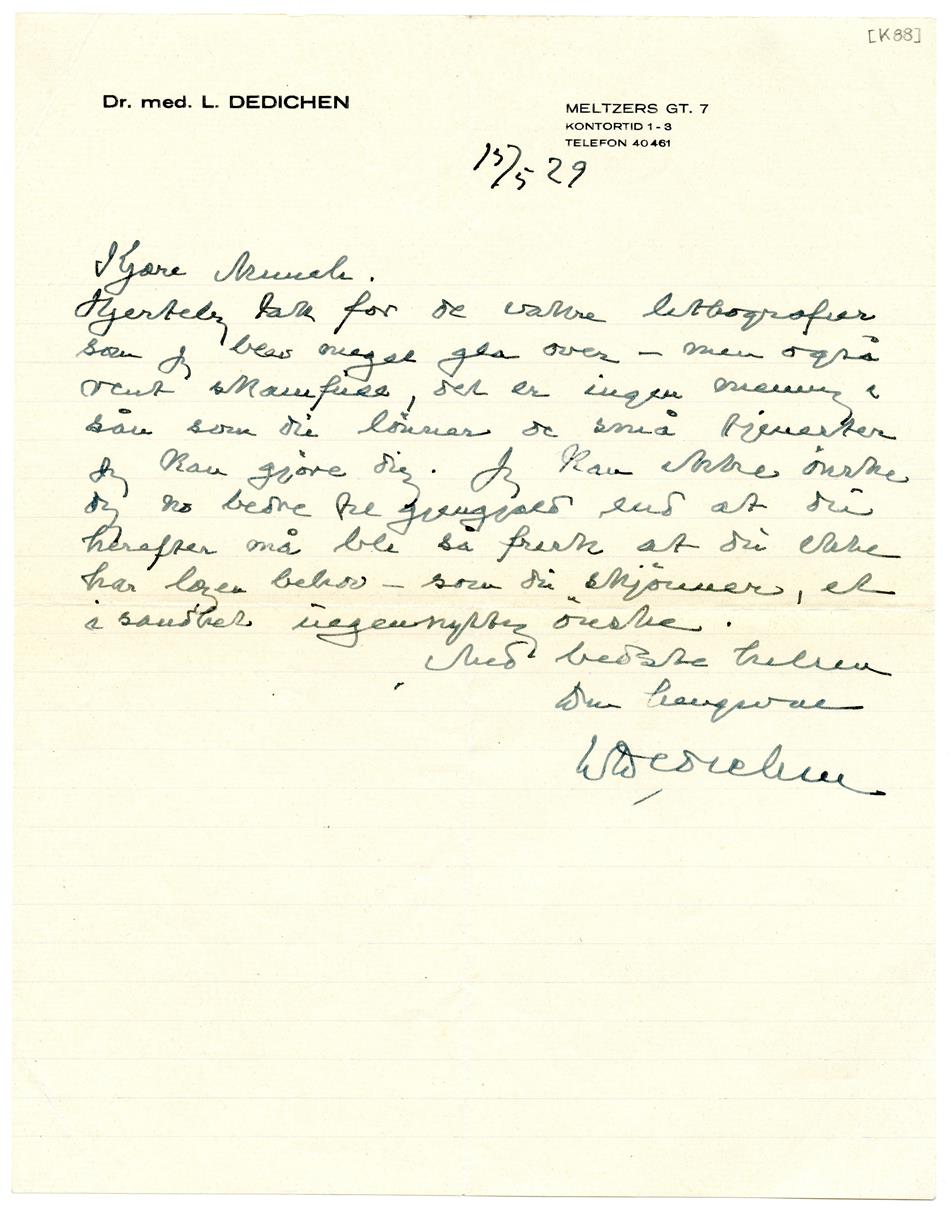 [K88]
Dr. med. L. DEDICHEN
MELTZERS GT. 7
KONTORTID 1 - 3
TELEFON 40461
15/5 29
Kjære Munch.
Hjertelig tak for de vakre lithografier
som jeg blev meget gla over — men også
rent skamfuld, det er ingen mening i
sån som du lönner de små tjenester
jeg kan gjöre dig. Jeg kan ikke önske
dig no bedre til gjengjæld end at du
herefter må bli så frisk at du ikke
har lægen behov — som du skjönner, et
i sandhet uegennyttig önske.
Med bedste hilsen
Din hengivne
LDedichen